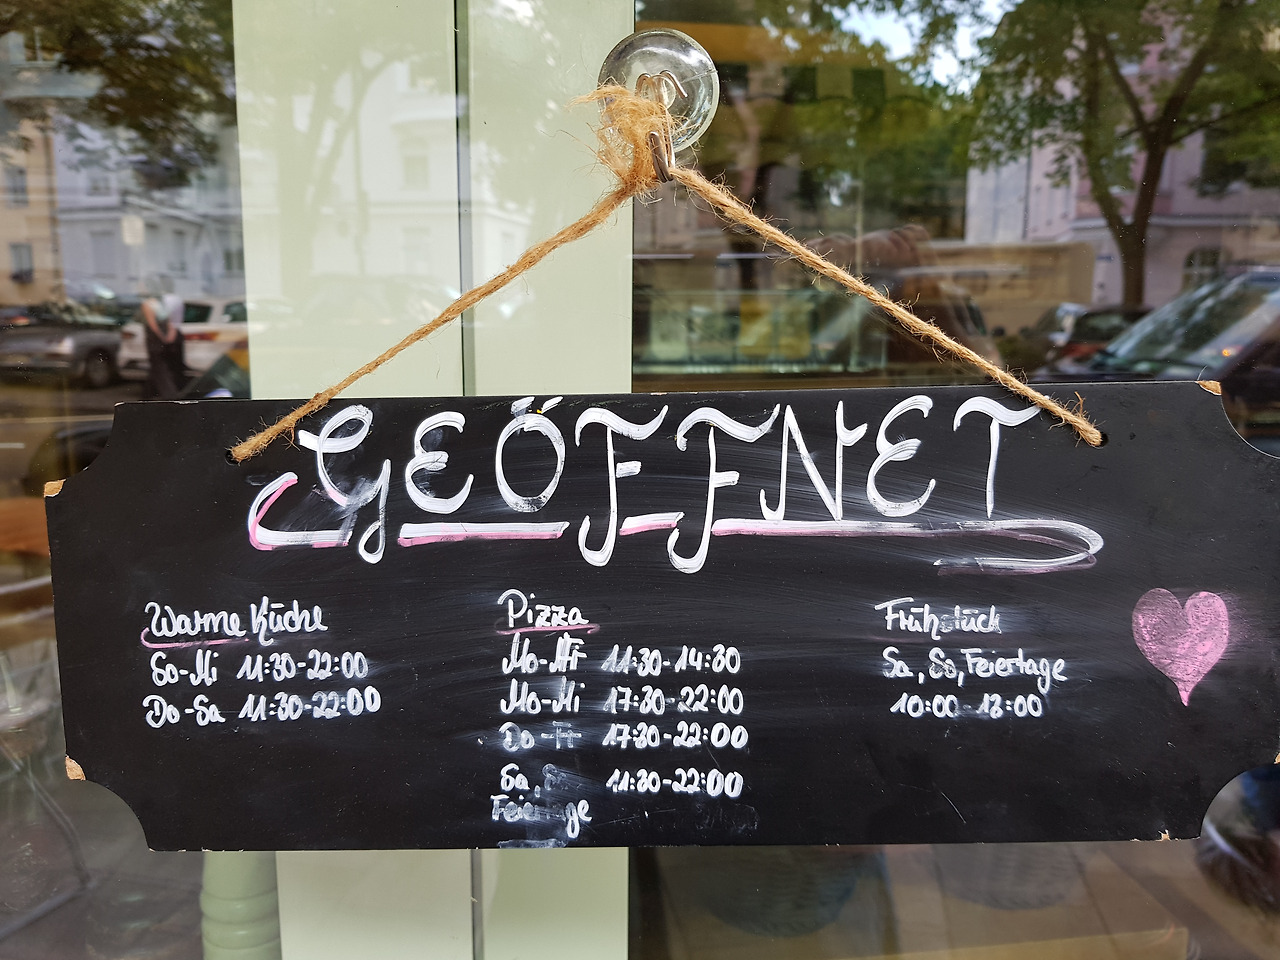 GEÖFFNET
Warme Küche
So-Mi 11:30-22:00
Do-Sa 11:30-22:00
Pizza
Mo-Mi 11:30-14:30
Mo-Mi 17:30-22:00
Do-Fr 17:30-22:00
Sa, 11:30-22:00
Feiertage
Frühstück
Sa, So, Feiertage
10:00-13:00